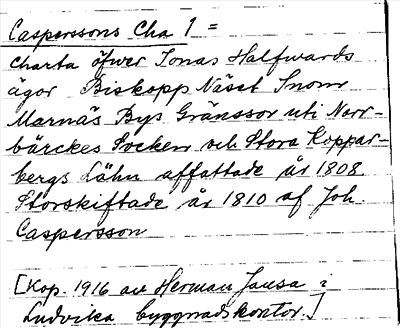 Casperssons Cha 1 =
Charta öfwer Jonas Halfwards
ägor Biskopp Näset Inom
Marnäs Bys Gränssor uti Norr-
bärckes Socken och Stora Koppar-
bergs Lähn affattade år 1808
Storskiftade år 1810 af Joh.
Caspersson
[Kop. 1916 av Herman Jansa i
Ludvika byggnadskontor.]